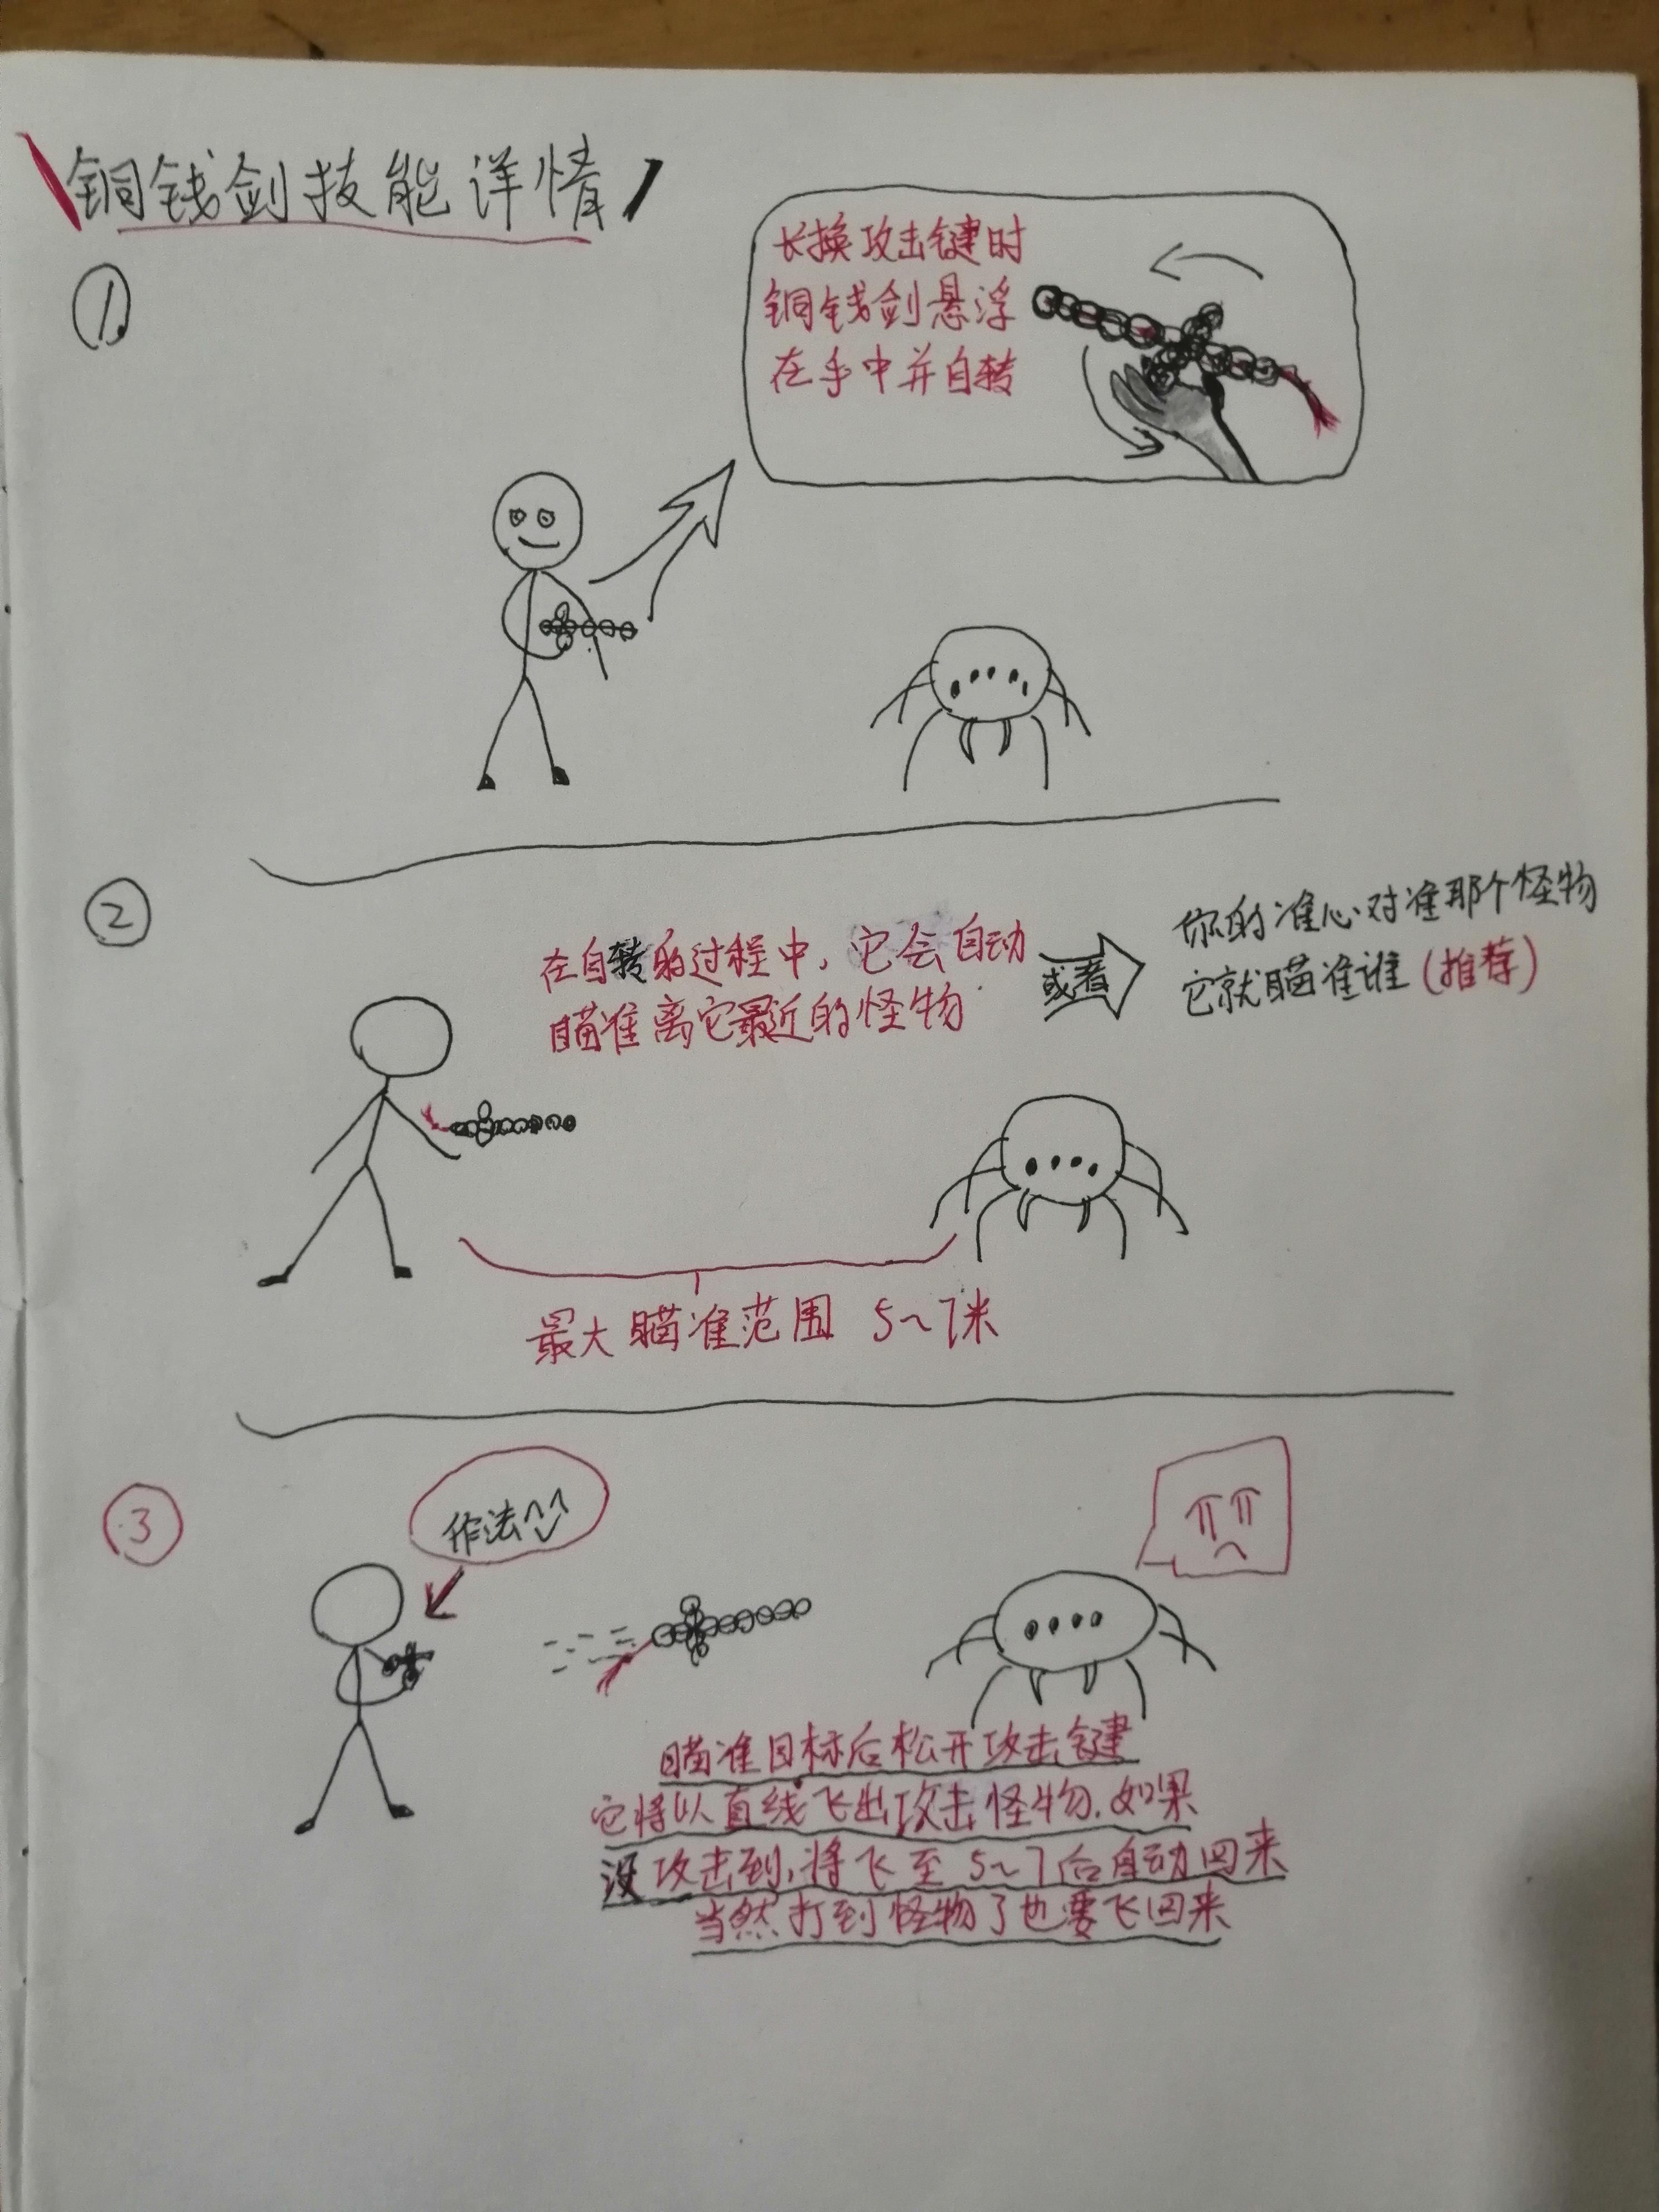 铜钱剑技能详情
①
长换攻击键时
铜钱剑悬浮
在手中并自转
②
在自转的过程中，它会自动
瞄准离它最近的怪物
或者
你的准心对准那个怪物
它就瞄准谁（推荐）
最大瞄准范围 5~7米
③
作法
瞄准目标后松开攻击键
它将以直线飞出攻击怪物.如果
没攻击到，将飞至5~7后自动回来
当然打到怪物了也要飞回来